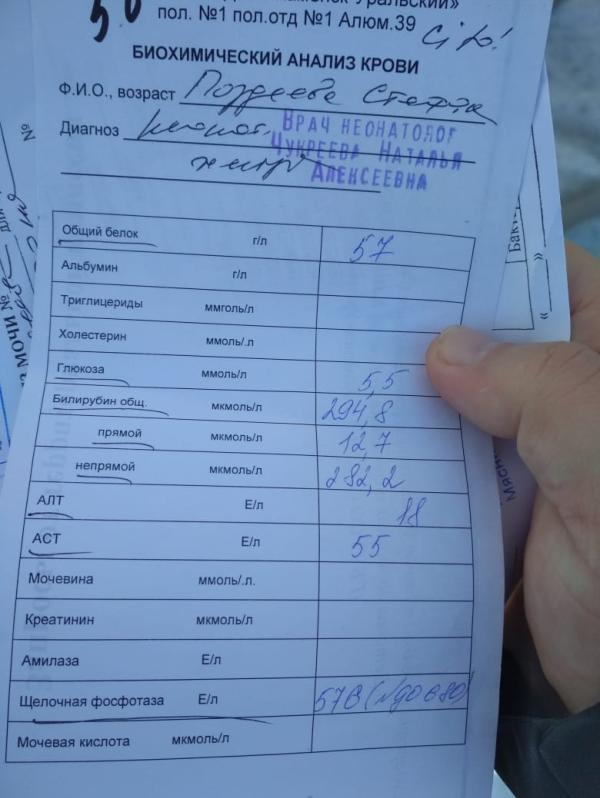 Уральский»
пол. №1 пол.отд №1 Алюм.39
cito!
БИОХИМИЧЕСКИЙ АНАЛИЗ КРОВИ
Ф.И.О., возраст
Диагноз
ВРАЧ НЕОНАТОЛОГ
ЧУКРЕЕВА НАТАЛЬЯ
АЛЕКСЕЕВНА
Общий белок г/л 57
Альбумин г/л
Триглицериды ммголь/л
Холестерин ммоль/.л
Глюкоза ммоль/л 5,5
Билирубин общ. мкмоль/л 294,8
прямой мкмоль/л 12,7
непрямой мкмоль/л 282,2
АЛТ Е/л 18
АСТ Е/л 55
Мочевина ммоль/.л.
Креатинин мкмоль/л
Амилаза Е/л
Щелочная фосфотаза Е/л
Мочевая кислота мкмоль/л
МОЧИ №